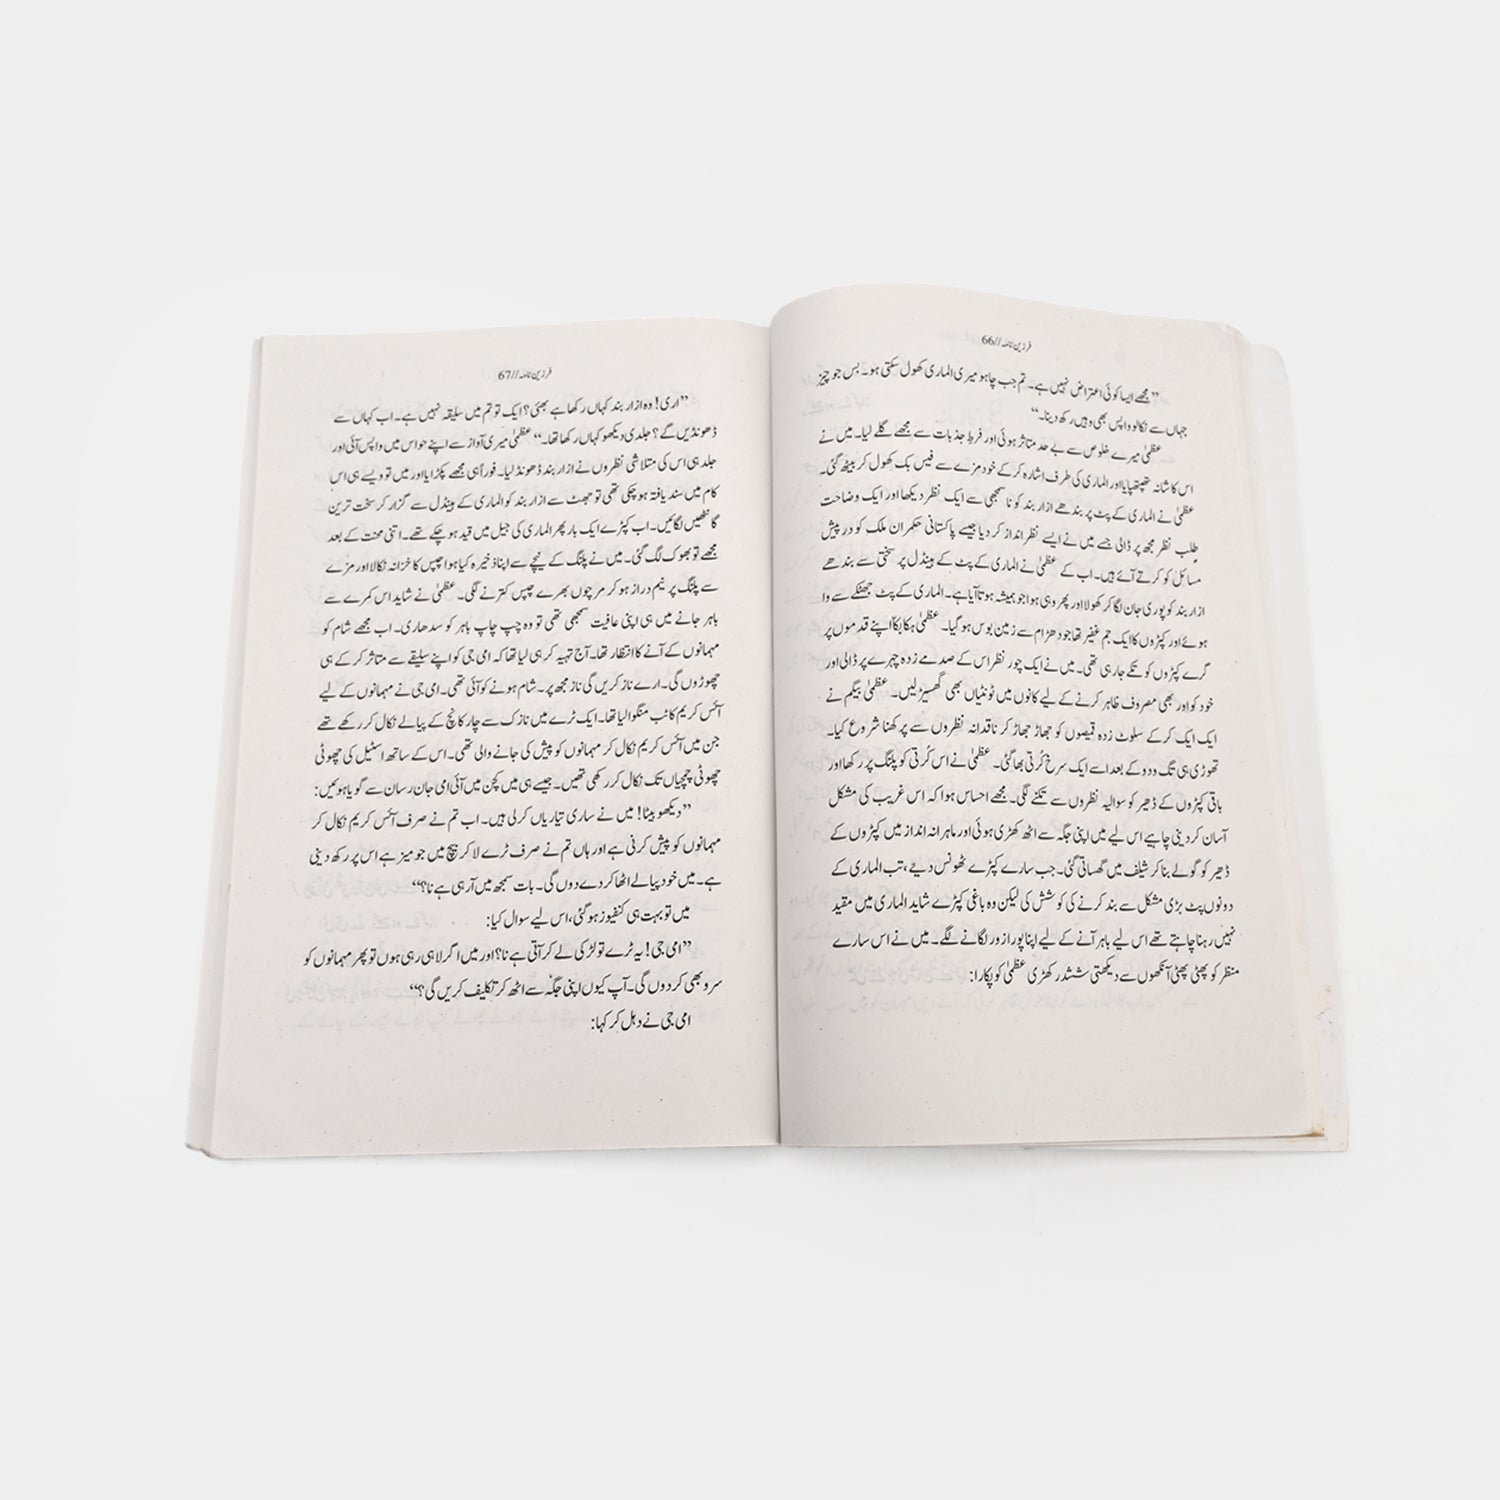 فرزین نامہ // 66
”مجھے ایسا کوئی اعتراض نہیں ہے۔ تم جب چاہو میری الماری کھول سکتی ہو۔ بس جو چیز
جہاں سے نکالو واپس بھی وہیں رکھ دینا۔“
عظمیٰ میرے خلوص سے بے حد متاثر ہوئی اور فرطِ جذبات سے مجھے گلے لیا۔ میں نے
اس کا شانہ تھپتھپایا اور الماری کی طرف اشارہ کر کے خود مزے سے فیس بک کھول کر بیٹھ گئی۔
عظمیٰ نے الماری کے پٹ پر بندھے ازار بند کو نا سمجھی سے ایک نظر دیکھا اور ایک وضاحت
طلب نظر مجھ پر ڈالی جسے میں نے ایسے نظر انداز کر دیا جیسے پاکستانی حکمران ملک کو در پیش
مسائل کو کرتے آئے ہیں۔ اب کے عظمیٰ نے الماری کے پٹ کے ہینڈل پر سختی سے بندھے
ازار بند کو پوری جان لگا کر کھولا اور پھر وہی ہوا جو ہمیشہ ہوتا آیا ہے۔ الماری کے پٹ جھٹکے سے وا
ہوئے اور کپڑوں کا ایک جم غفیر تھا جو دھڑام سے زمین بوس ہو گیا۔ عظمیٰ ہکا بکا اپنے قدموں پر
گرے کپڑوں کو تکے جا رہی تھی۔ میں نے ایک چور نظر اس کے صدمے زدہ چہرے پر ڈالی اور
خود کو اور بھی مصروف ظاہر کرنے کے لیے کانوں میں ٹونٹیاں بھی گھسیڑ لیں۔ عظمیٰ بیگم نے
ایک ایک کر کے سلوٹ زدہ قمیصوں کو جھاڑ جھاڑ کر ناقدانہ نظروں سے پرکھنا شروع کیا۔
تھوڑی ہی تگ و دو کے بعد اسے ایک سرخ کُرتی بھا گئی۔ عظمیٰ نے اس کُرتی کو پلنگ پر رکھا اور
باقی کپڑوں کے ڈھیر کو سوالیہ نظروں سے تکنے لگی۔ مجھے احساس ہوا کہ اس غریب کی مشکل
آسان کر دینی چاہیے اس لیے میں اپنی جگہ سے اٹھ کھڑی ہوئی اور ماہرانہ انداز میں کپڑوں کے
ڈھیر کو گولے بنا کر شیلف میں گھساتی گئی۔ جب سارے کپڑے ٹھونس دیے، تب الماری کے
دونوں پٹ بڑی مشکل سے بند کرنے کی کوشش کی لیکن وہ باغی کپڑے شاید الماری میں مقید
نہیں رہنا چاہتے تھے اس لیے باہر آنے کے لیے اپنا پورا زور لگانے لگے۔ میں نے اس سارے
منظر کو پھٹی پھٹی آنکھوں سے دیکھتی ششدر کھڑی عظمیٰ کو پکارا:
فرزین نامہ // 67
”اری! وہ ازار بند کہاں رکھا ہے بھئی؟ ایک تو تم میں سلیقہ نہیں ہے۔ اب کہاں سے
ڈھونڈیں گے؟ جلدی دیکھو کہاں رکھا تھا۔“ عظمیٰ میری آواز سے اپنے حواس میں واپس آئی اور
جلد ہی اس کی متلاشی نظروں نے ازار بند ڈھونڈ لیا۔ فوراً ہی مجھے پکڑایا اور میں تو ویسے ہی اس
کام میں سند یافتہ ہو چکی تھی تو جھٹ سے ازار بند کو الماری کے ہینڈل سے گزار کر سخت ترین
گانٹھیں لگائیں۔ اب کپڑے ایک بار پھر الماری کی جیل میں قید ہو چکے تھے۔ اتنی محنت کے بعد
مجھے تو بھوک لگ گئی۔ میں نے پلنگ کے نیچے سے اپنا ذخیرہ کیا ہوا چپس کا خزانہ نکالا اور مزے
سے پلنگ پر نیم دراز ہو کر مرچوں بھرے چپس کترنے لگی۔ عظمیٰ نے شاید اس کمرے سے
باہر جانے میں ہی اپنی عافیت سمجھی تھی تو وہ چپ چاپ باہر کو سدھاری۔ اب مجھے شام کو
مہمانوں کے آنے کا انتظار تھا۔ آج تہیہ کر ہی لیا تھا کہ امی جی کو اپنے سلیقے سے متاثر کر کے ہی
چھوڑوں گی۔ ارے ناز کریں گی ناز مجھ پر۔ شام ہونے کو آئی تھی۔ امی جی نے مہمانوں کے لیے
آئس کریم کا ٹب منگوا لیا تھا۔ ایک ٹرے میں نازک سے چار کانچ کے پیالے نکال کر رکھے تھے
جن میں آئس کریم نکال کر مہمانوں کو پیش کی جانے والی تھی۔ اس کے ساتھ اسٹیل کی چھوٹی
چھوٹی چمچیاں تک نکال کر رکھی تھیں۔ جیسے ہی میں کچن میں آئی امی جان رسان سے گویا ہوئیں:
”دیکھو بیٹا! میں نے ساری تیاریاں کر لی ہیں۔ اب تم نے صرف آئس کریم نکال کر
مہمانوں کو پیش کرنی ہے اور ہاں تم نے صرف ٹرے لا کر بیچ میں جو میز ہے اس پر رکھ دینی
ہے۔ میں خود پیالے اٹھا کر دے دوں گی۔ بات سمجھ میں آ رہی ہے نا؟“
میں تو بہت ہی کنفیوز ہو گئی، اس لیے سوال کیا:
”امی جی! یہ ٹرے تو لڑکی لے کر آتی ہے نا؟ اور میں اگر لا ہی رہی ہوں تو پھر مہمانوں کو
سرو بھی کر دوں گی۔ آپ کیوں اپنی جگہ سے اٹھ کر تکلیف کریں گی؟“
امی جی نے دہل کر کہا: